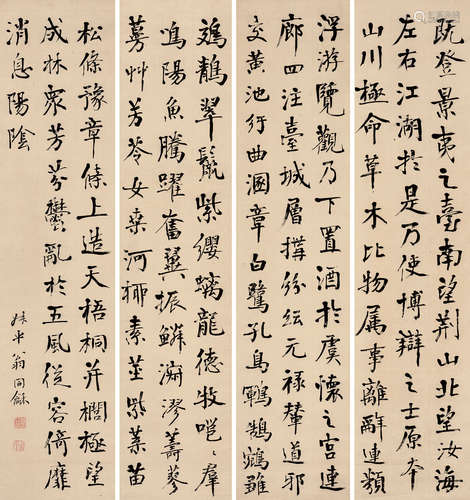 既登景夷之臺南望荊山北望汝海
左右江湖於是乃使博辯之士原本
山川極命草木比物属事離辭連類
浮游覽觀乃下置酒於虞懷之宮連
廊四注臺城層搆紛紜元祿輦道邪
交黃池行曲溷章白鷺孔鳥鶤鵠鵷雛
鵁鶄翠鬣紫纓螭龍德牧噰噰羣
鳴陽魚騰躍奮翼振鱗漃漻薵蓼
蔓艸芳苓女桑河柳素莖紫葉苗
松條豫章條上造天梧桐并櫚極望
成林眾芳芬鬱亂於五風從容倚靡
消息陽陰
叔平翁同龢